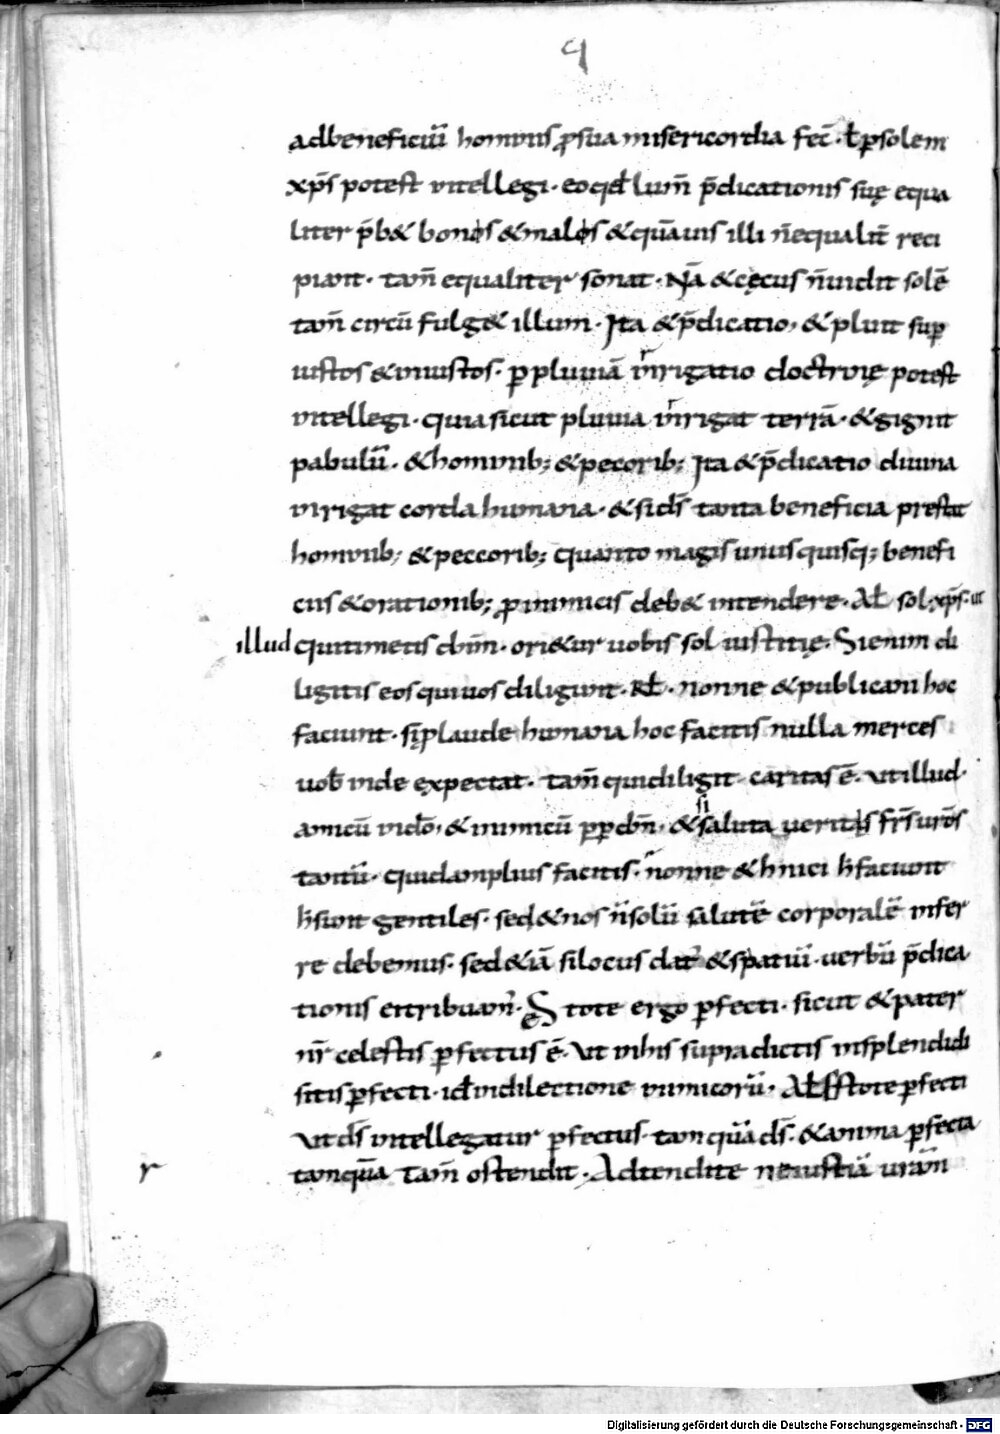 q
adbeneficiū hominis ꝓsua misericordia fec̄ · ł ꝑsolem
xp̄s potest intellegi · eoqđ lum̄ p̄dicationis suę equa
liter p̄b& bonos &malos &quāuis illi n̄equalit̄ reci
piant · tam̄ equaliter sonat · Nā &cęcus n̄uidit solē
tam̄ circū fulg& illum · Ita &p̄dicatio, &pluit suꝑ
iustos &iniustos · ꝑ pluuiā inrigatio doctrinę potest
intellegi · quia sicut pluuia inrigat terrā · &gignit
pabulū · &hominib; &pecorib; Ita &p̄dicatio diuina
inrigat corda humana · &sid̄s tanta beneficia prestat
hominib; &peccorib; quanto magis unusquisq; benefi
cus &orationib; ꝓ inimicis deb& intendere · Ał sol · xp̄s · ut
illud quitimetis dn̄m · ori&ur uobis sol iustitię · Sienim di
ligitis eos quiuos diligunt · Rł · nonne &publicani hoc
faciunt · s̄ꝑlaude humana hoc facitis nulla merces
uob̄ inde expectat · tam̄ quidiligit caritas ē · ut illud ·
amicū indō, &inimicū ꝓpdn̄, &si saluta ueritis fr̄s ur̄os
tantū · quidamplius facitis · nonne &hnici h̄ faciunt
h̄sunt gentiles · sed&nos n̄solū salutē corporalē infer
re debemus · sed&iā silocus dat̄ &spatiū · uerbū p̄dica
tionis eitribuam̄ · Estote ergo ꝑfecti · sicut &pater
nr̄ celestis ꝑfectus ē · Ut inhis supradictis insplendidi
sitis ꝑfecti · idł indilectione inimicorū · Ał Estote ꝑfecti
ut d̄s intellegatur ꝑfectus tam quā d̄s · &anima ꝑfecta
tanquā tam̄ ostendit · Adtendite neiustiā uram̄
r
Digitalisierung gefördert durch die Deutsche Forschungsgemeinschaft - DFG